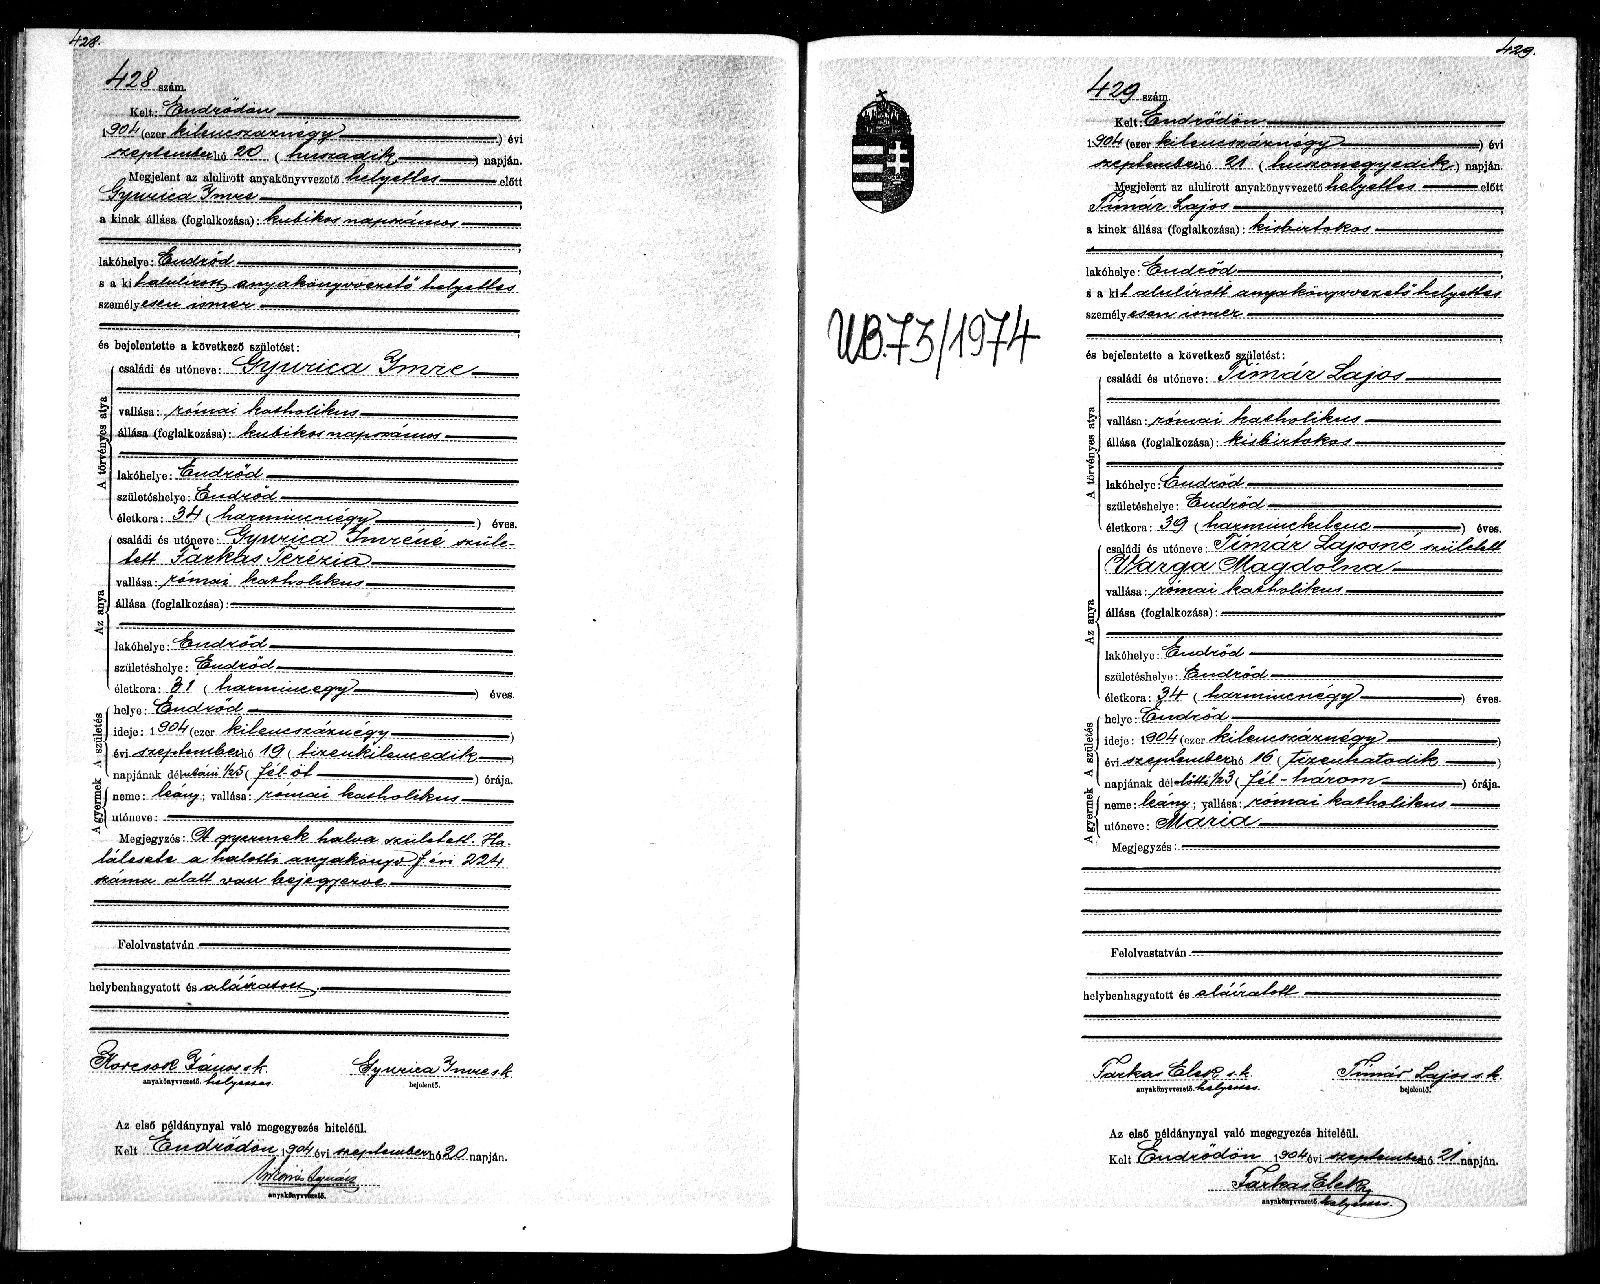 428.
428 szám.
Kelt: Endrődön
1904 (ezer kilencszáznégy) évi
szeptember hó 20 (huszadik) napján.
Megjelent az alulirott anyakönyvvezető helyettes előtt
Gyurica Imre,
a kinek állása (foglalkozása): kubikos napszámos
lakóhelye: Endrőd
s a kit alulirott anyakönyvvezető helyettes
személyesen ismer
és bejelentette a következő születést:
A törvényes atya
családi és utóneve: Gyurica Imre
vallása: római katholikus
állása (foglalkozása): kubikos napszámos
lakóhelye: Endrőd
születéshelye: Endrőd
életkora: 34 (harmincnégy) éves.
Az anya
családi és utóneve: Gyurica Imréné szüle-
tett Farkas Terézia
vallása: római katholikus
állása (foglalkozása):
lakóhelye: Endrőd
születéshelye: Endrőd
életkora: 31 (harmincegy) éves.
A születés
helye: Endrőd
ideje: 1904 (ezer kilencszáznégy)
évi szeptember hó 19 (tizenkilencedik)
napjának délutáni 1/2 5 (fél öt) órája.
A gyermek
neme: leány; vallása: római katholikus
utóneve:
Megjegyzés: A gyermek halva született. Ha-
lálesete a halotti anyakönyv f. évi 224
száma alatt van bejegyezve
Felolvastatván
helybenhagyatott és aláiratott.
Korcsok János sk. Gyurica Imre sk
anyakönyvvezető. helyettes bejelentő.
Az első példánynyal való megegyezés hiteléül.
Kelt Endrődön 1904 évi szeptember hó 20 napján.
anyakönyvvezető.
429.
UB.73/1974
429 szám
Kelt: Endrődön
1904 (ezer kilencszáznégy) évi
szeptember hó 21 (huszonegyedik) napján.
Megjelent az alulirott anyakönyvvezető helyettes előtt
Tímár Lajos,
a kinek állása (foglalkozása): kisbirtokos
lakóhelye: Endrőd
s a kit alulirott anyakönyvvezető helyettes
személyesen ismer
és bejelentette a következő születést:
A törvényes atya
családi és utóneve: Tímár Lajos
vallása: római katholikus
állása (foglalkozása): kisbirtokos
lakóhelye: Endrőd
születéshelye: Endrőd
életkora: 39 (harminckilenc) éves.
Az anya
családi és utóneve: Tímár Lajosné született
Varga Magdolna
vallása: római katholikus
állása (foglalkozása):
lakóhelye: Endrőd
születéshelye: Endrőd
életkora: 34 (harmincnégy) éves.
A születés
helye: Endrőd
ideje: 1904 (ezer kilencszáznégy)
évi szeptember hó 16 (tizenhatodik)
napjának délelőtti 1/2 3 (fél-három) órája.
A gyermek
neme: leány; vallása: római katholikus
utóneve: Mária
Megjegyzés:
Felolvastatván
helybenhagyatott és aláíratott
Farkas Elek s.k. Tímár Lajos s.k.
anyakönyvvezető. helyettes bejelentő.
Az első példánynyal való megegyezés hiteléül.
Kelt Endrődön 1904 évi szeptember hó 21 napján.
Farkas Elek
anyakönyvvezető helyettes.